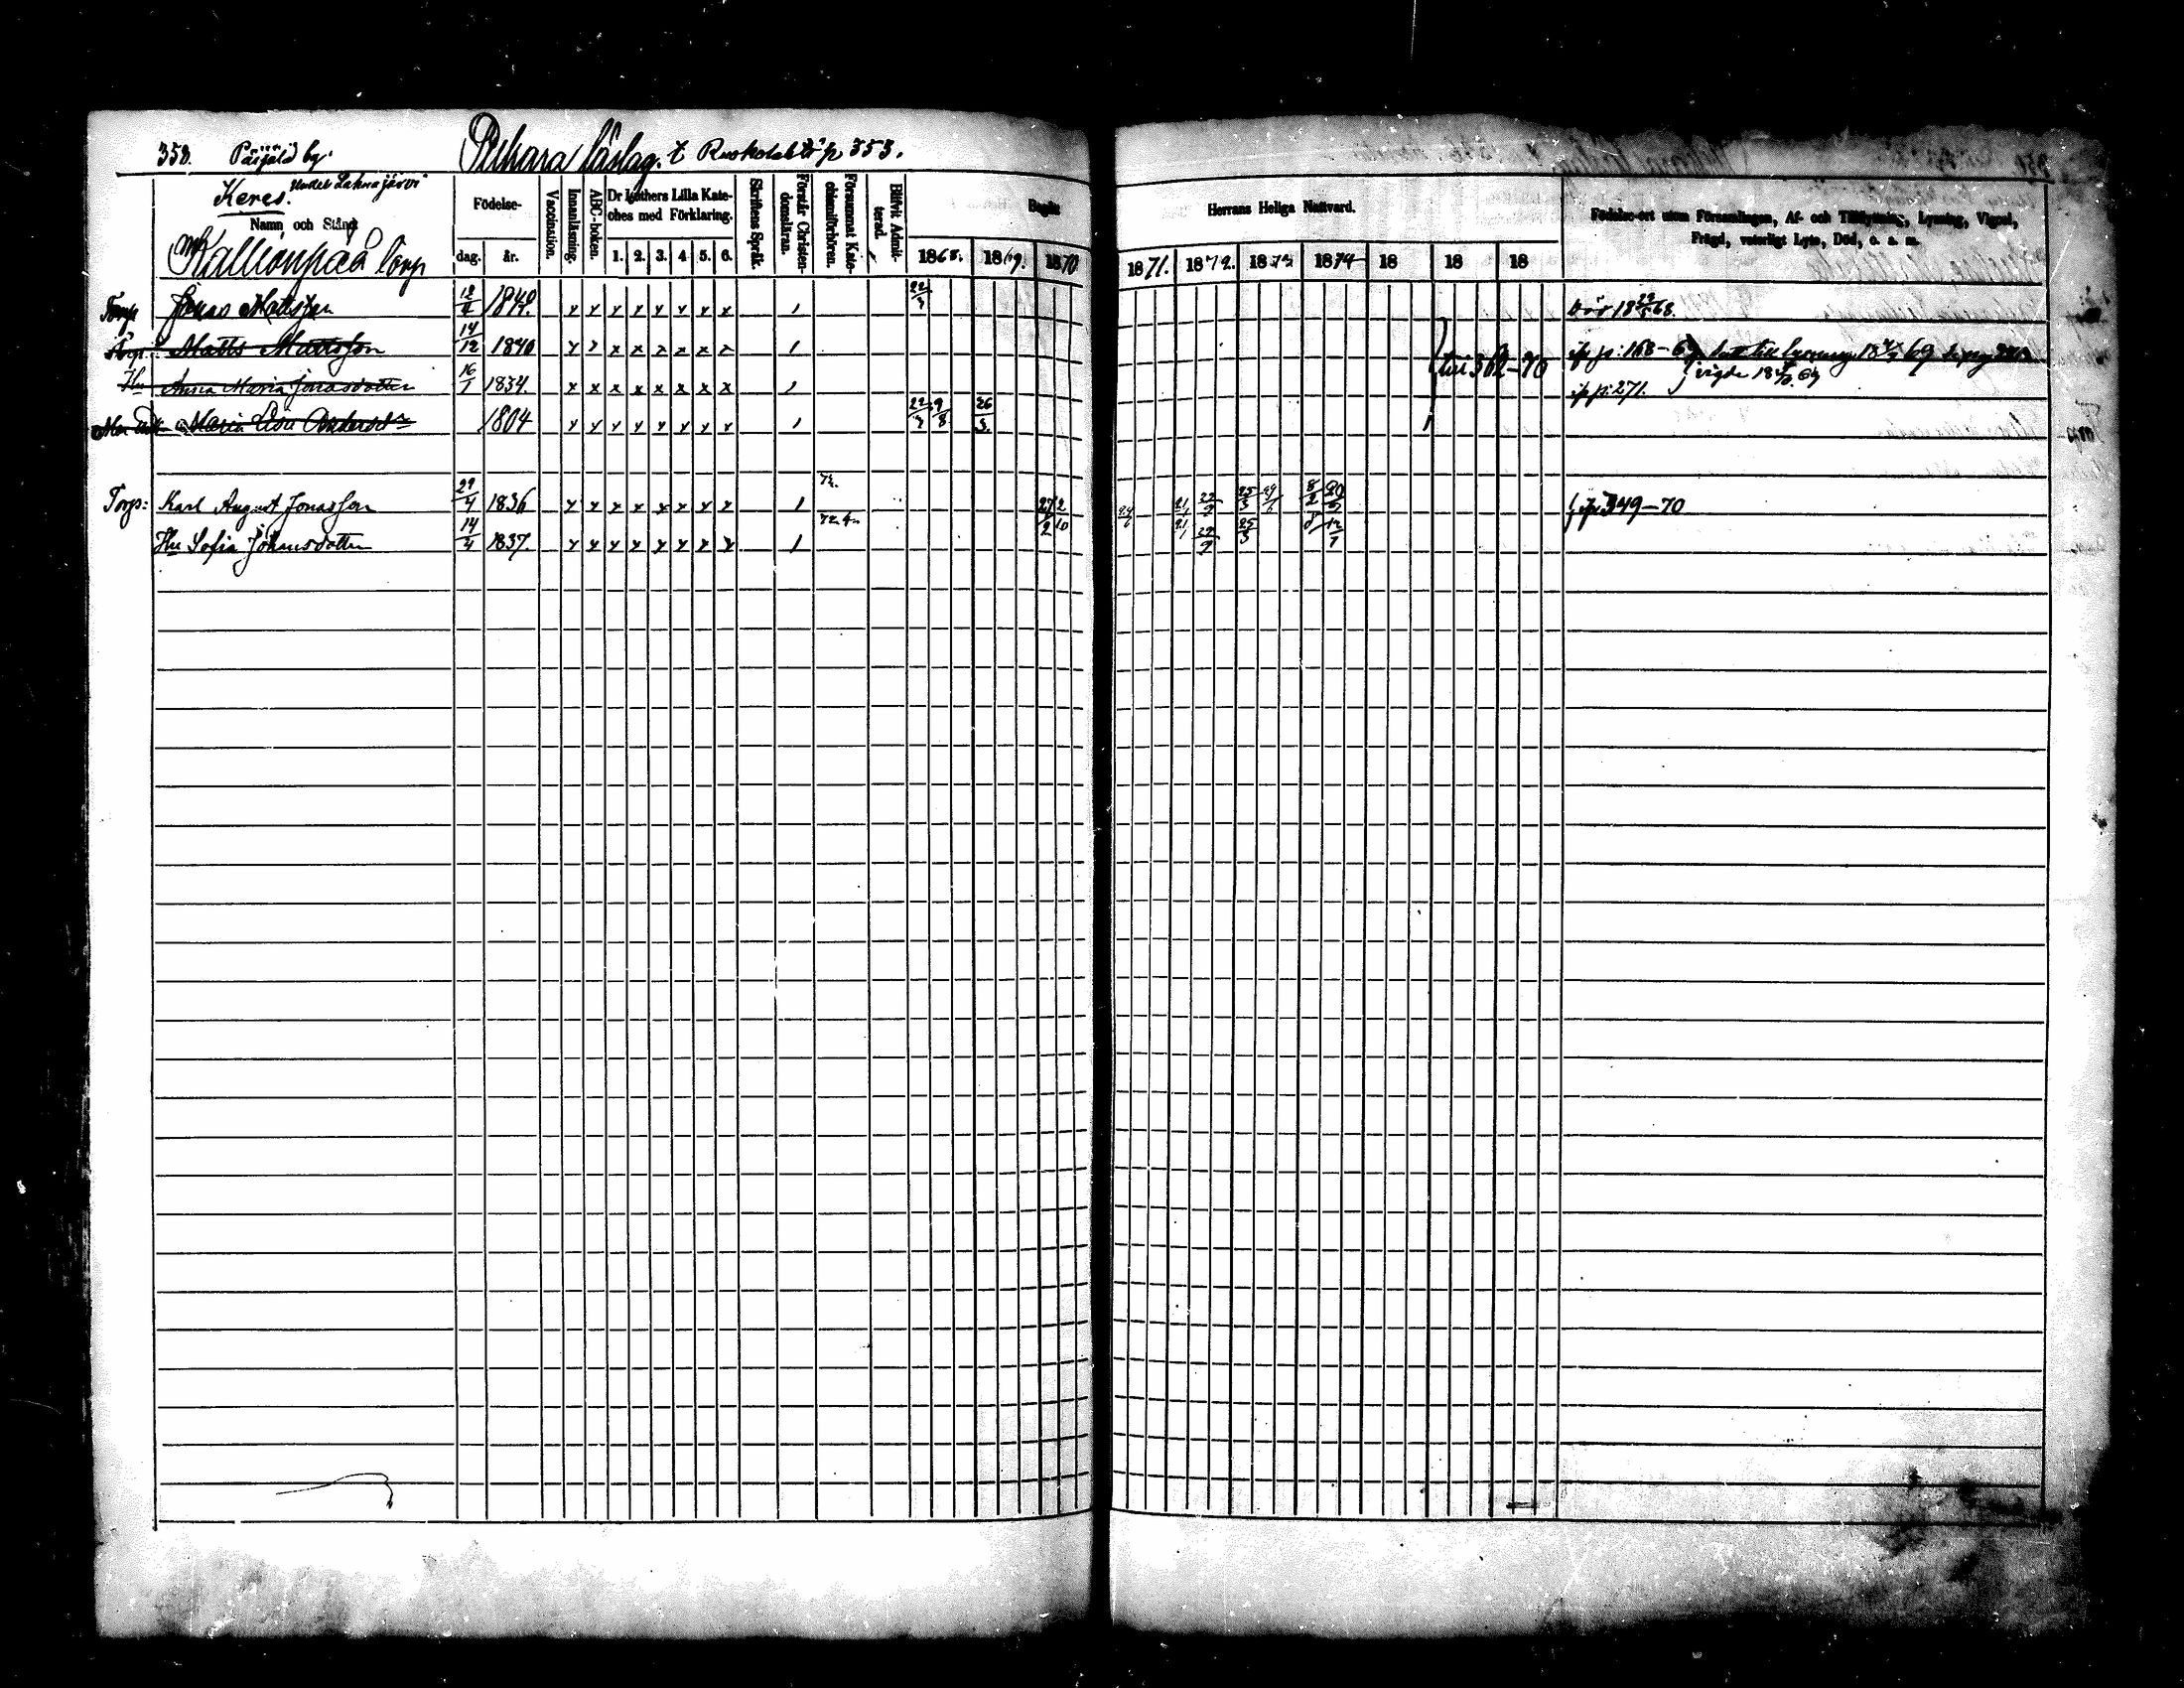 358. Päijälä by. Pihara läslag. t. p 353.
Keres. Under Lahnajärvi
Namn och Stånd
Kallionpää torp
Födelse-
dag. år.
Vaccination.
Innanläsning.
ABC-boken.
Dr Luthers Lilla Kate-
ches med Förklaring.
1. 2. 3. 4. 5. 6.
Skriftens Språk.
Förstår Christen-
domsläran.
Försummat Kate-
chismiförhören.
Blifvit Admit-
terad.
Begått Herrans Heliga Nattvard.
1868. 1869. 1870 1871. 1872. 1873 1874 18 18 18
Födelse-ort utom Församlingen, Af- och Tillflyttning, Lysning, Vigsel,
Frägd, veterligt Lyte, Död, o. a. m.
Torp Jonas Mattsson 1840 x x x x x x x x 1 22/3 Dör 18 68.
Torp: Matts Mattsson 14/12 1840 x x x x x x x x 1 ifr p: 168-69 till lysning 18 69
Hu Anna Maria Jonasdotter 16/1 1834. x x x x x x x x 1 till 362-70 ifr p: 271. vigde 18 69
Maria Lisa Andersdr 1804 x x x x x x x x 1 22/3 9/8 26/3.
Torp: Karl August Jonasson 29/4 1836 x x x x x x x x 1 72. 27/2 2/10 24/6 21/1 22/9 25/3 8/2 ifr p: 349-70
Hu Sofia Johansdotter 14/4 1837. x x x x x x x x 1 21/1 22/9 25/3 12/7